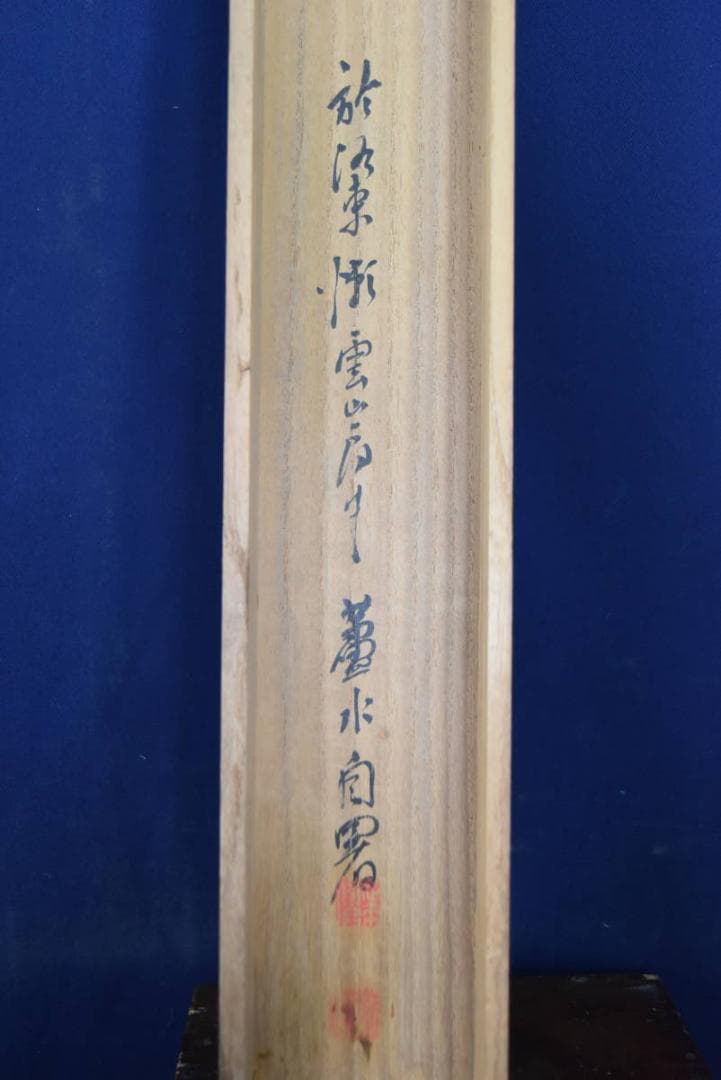 於洛東懶雲山房中蘆水自署